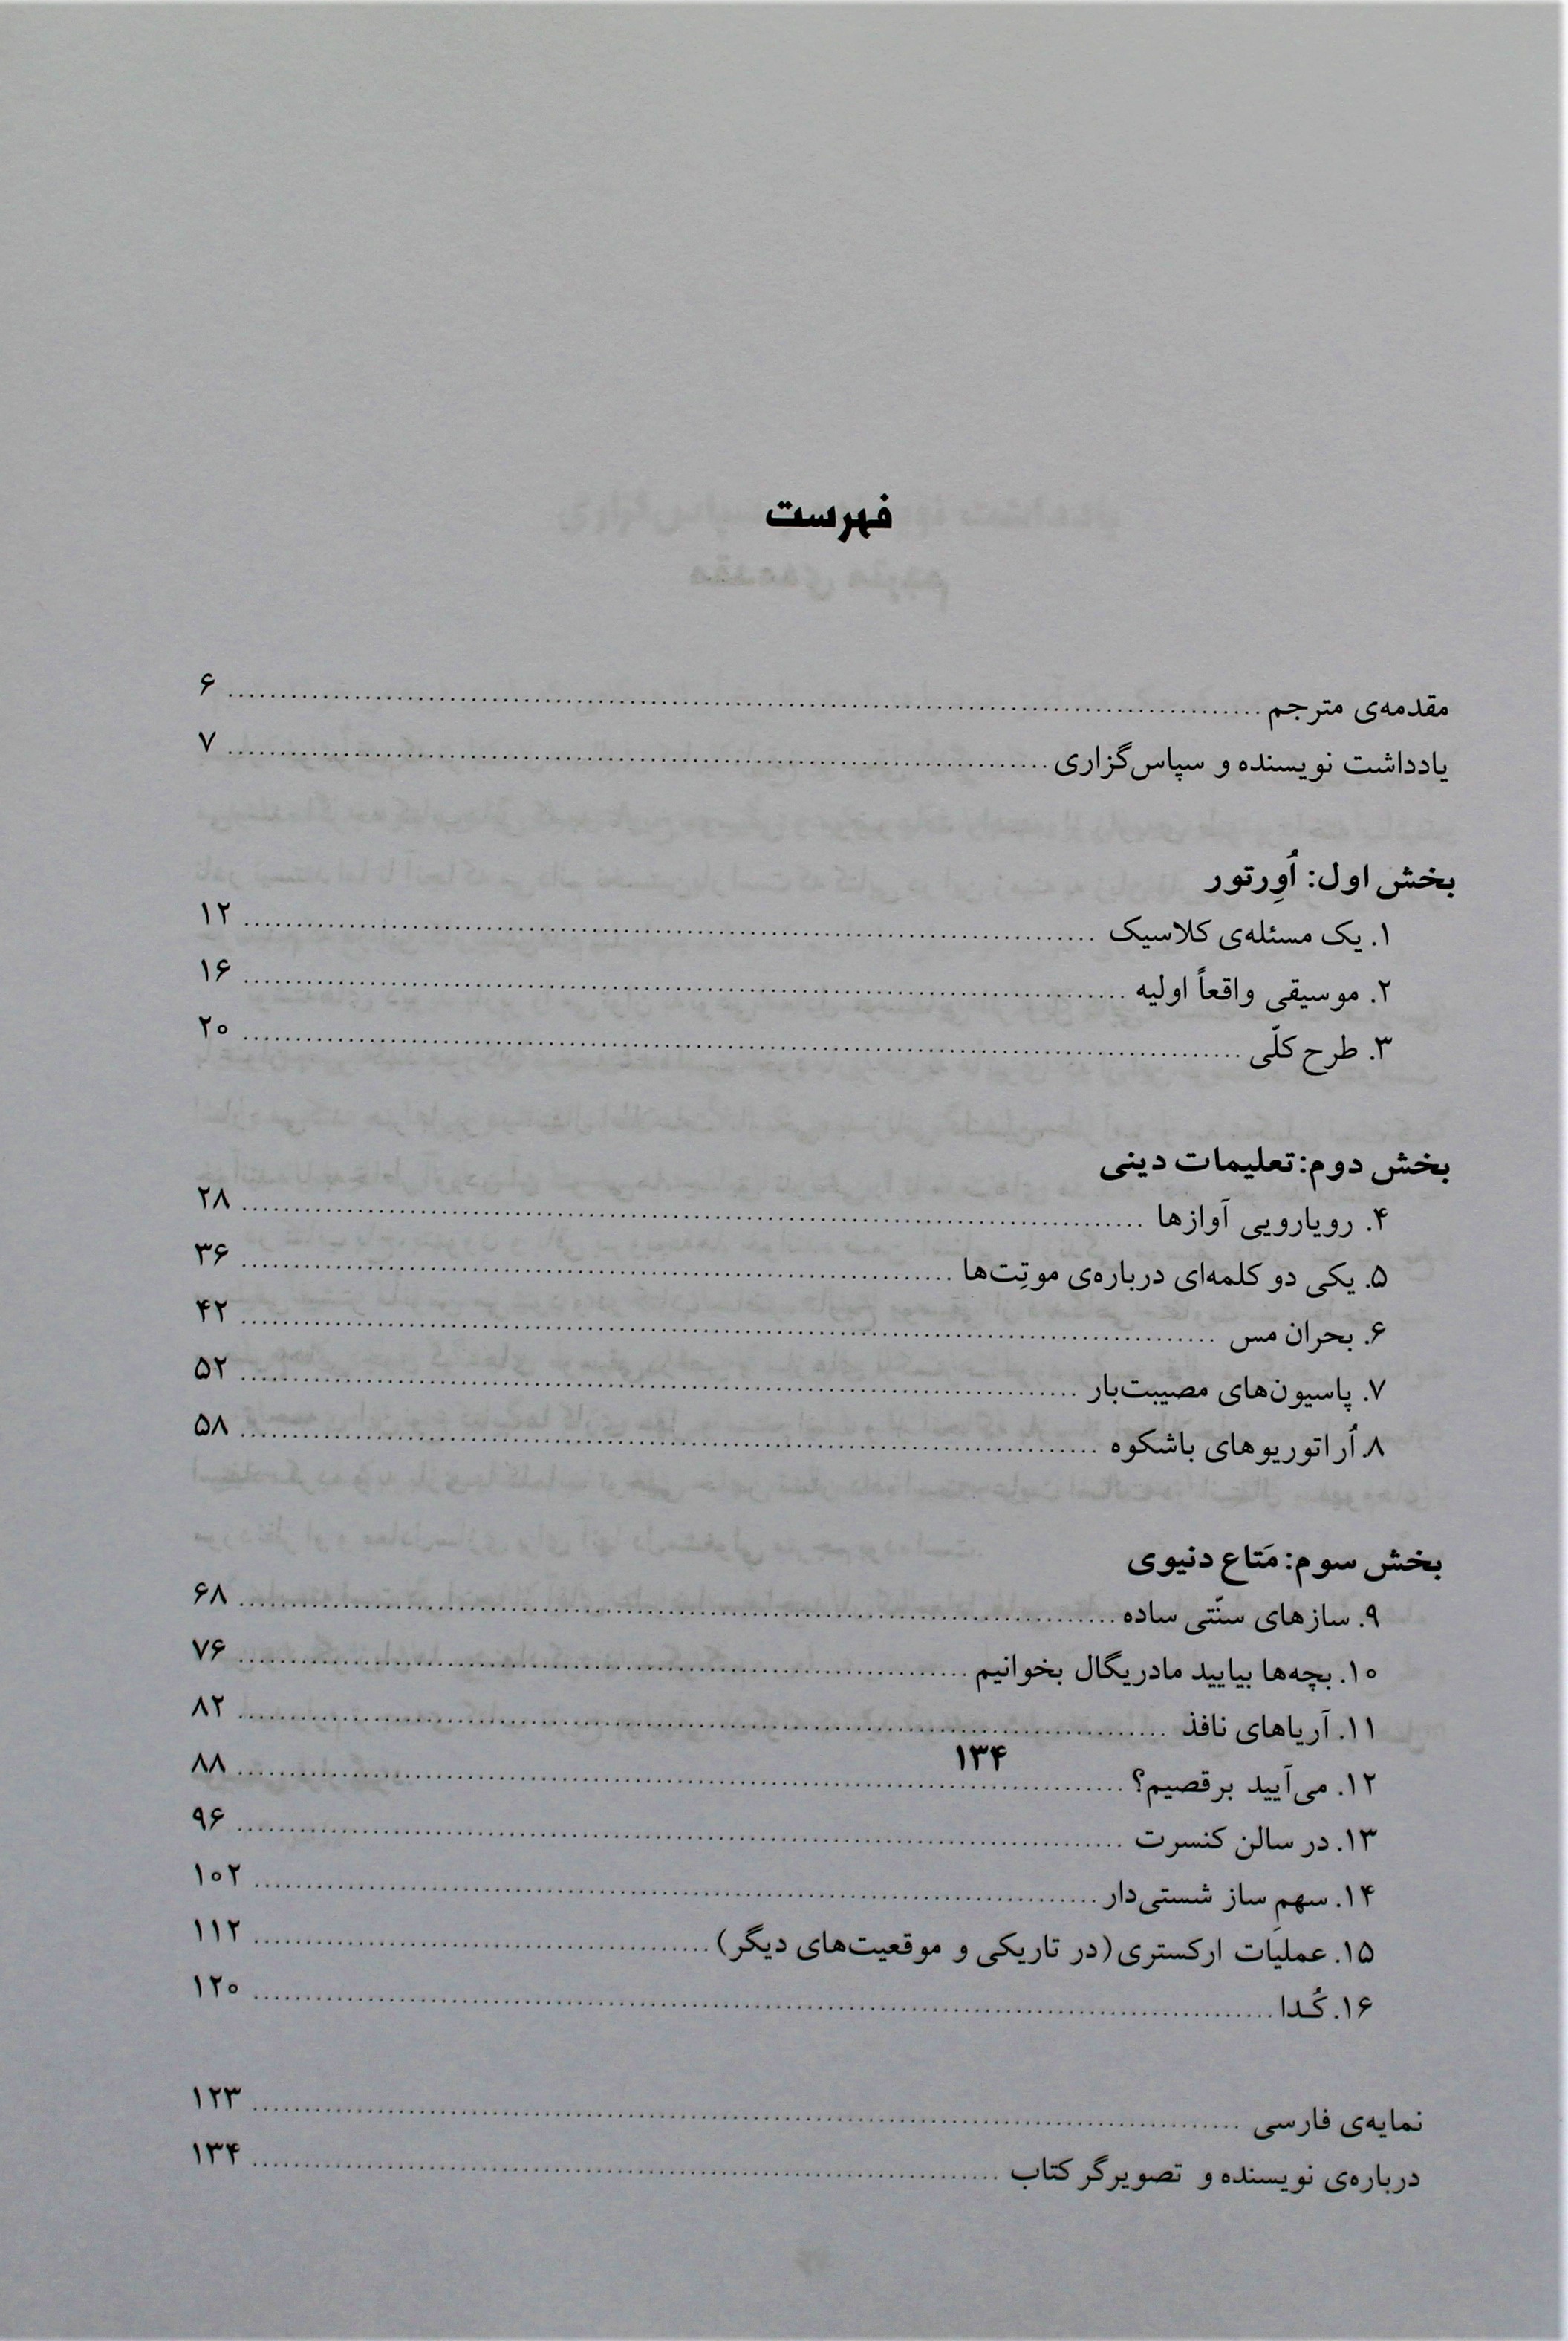 فهرست
مقدمه‌ی مترجم ........ ۶
یادداشت نویسنده و سپاس‌گزاری ........ ۷
بخش اول: اُوِرتور
۱. یک مسئله‌ی کلاسیک ........ ۱۲
۲. موسیقی واقعاً اولیه ........ ۱۶
۳. طرح کلّی ........ ۲۰
بخش دوم: تعلیمات دینی
۴. رویارویی آوازها ........ ۲۸
۵. یکی دو کلمه‌ای درباره‌ی موتِت‌ها ........ ۳۶
۶. بحران مس ........ ۴۲
۷. پاسیون‌های مصیبت‌بار ........ ۵۲
۸. اُراتوریوهای باشکوه ........ ۵۸
بخش سوم: مَتاع دنیوی
۹. سازهای سنّتی ساده ........ ۶۸
۱۰. بچه‌ها بیایید مادریگال بخوانیم ........ ۷۶
۱۱. آریاهای نافذ ........ ۸۲
۱۳۴
۱۲. می‌آیید برقصیم؟ ........ ۸۸
۱۳. در سالن کنسرت ........ ۹۶
۱۴. سهمِ ساز شستی‌دار ........ ۱۰۲
۱۵. عملیَات ارکستری (در تاریکی و موقعیت‌های دیگر) ........ ۱۱۲
۱۶. کُدا ........ ۱۲۰
نمایه‌ی فارسی ........ ۱۲۳
درباره‌ی نویسنده و تصویرگر کتاب ........ ۱۳۴